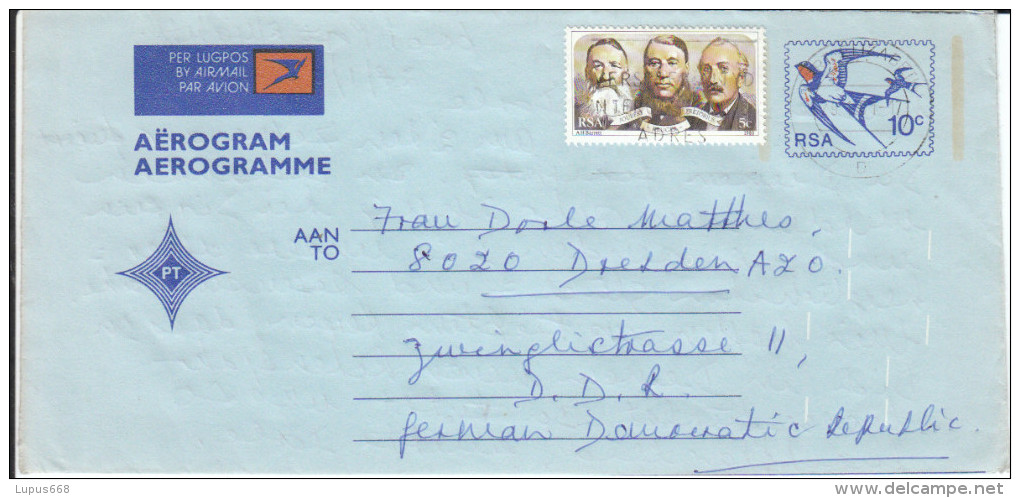 PER LUGPOS
BY AIRMAIL
PAR AVION
AËROGRAM
AEROGRAMME
PT
RSA
5c
ADRES
10c
RSA
AAN
TO
Frau Dorle Matthes,
8020 Dresden A20.
Zwinglistrasse 11,
D. D. R.
German Democratic Republic.
Lupus668
delcampe.net